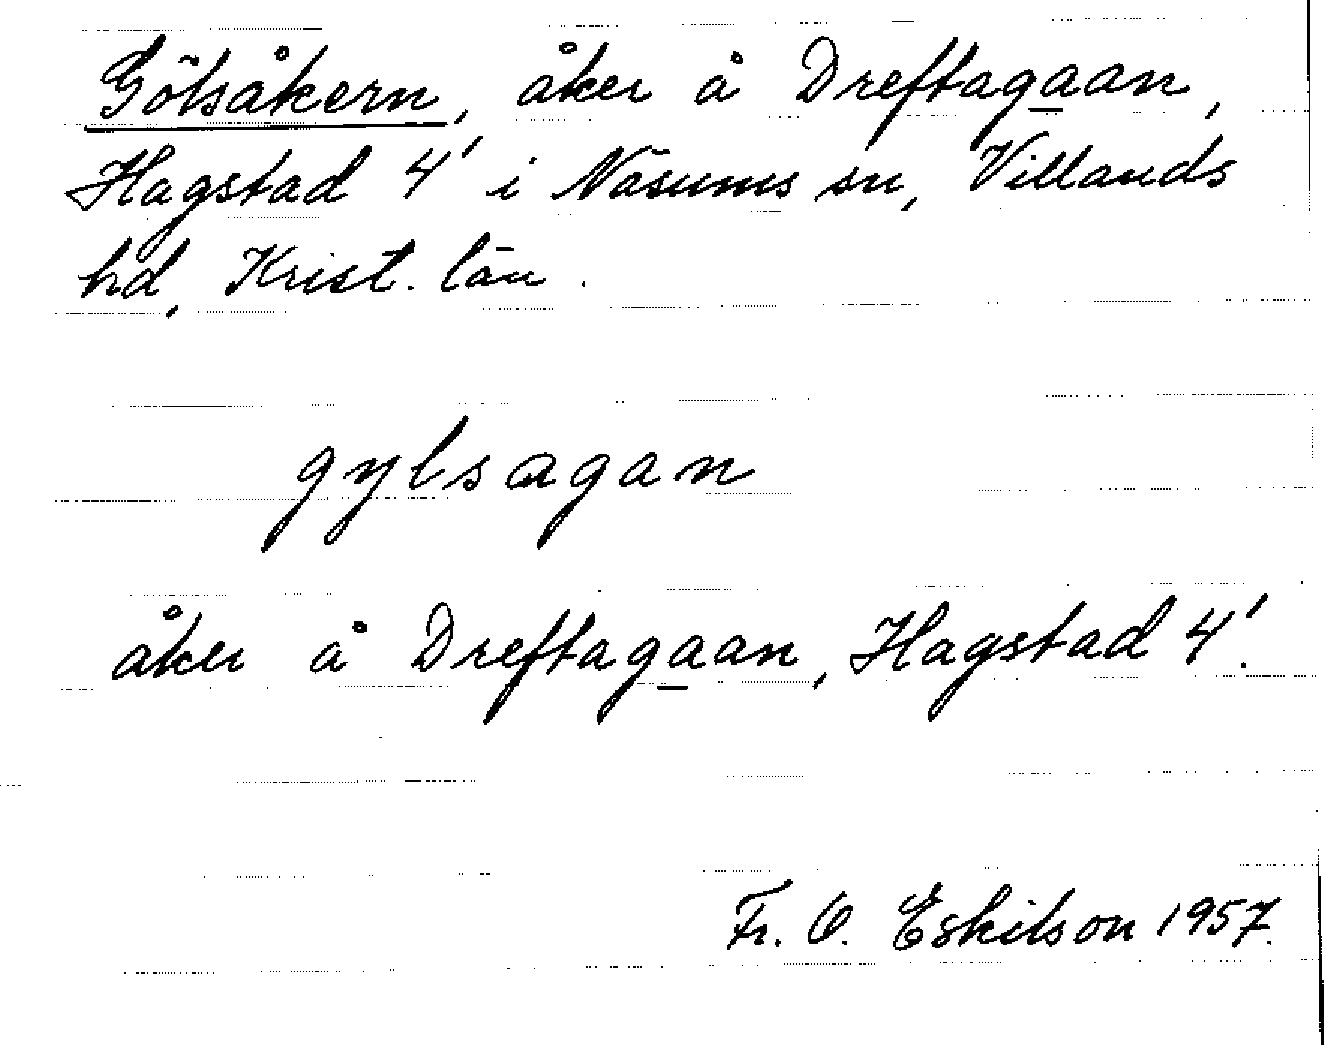 Gölsåkern, åker å Dreftagaan,
Hagstad 4' i Näsums sn, Villands
hd, Krist. län.
gylsagan
åker å Dreftagaan, Hagstad 4'.
Fr. O. Eskilson 1957.